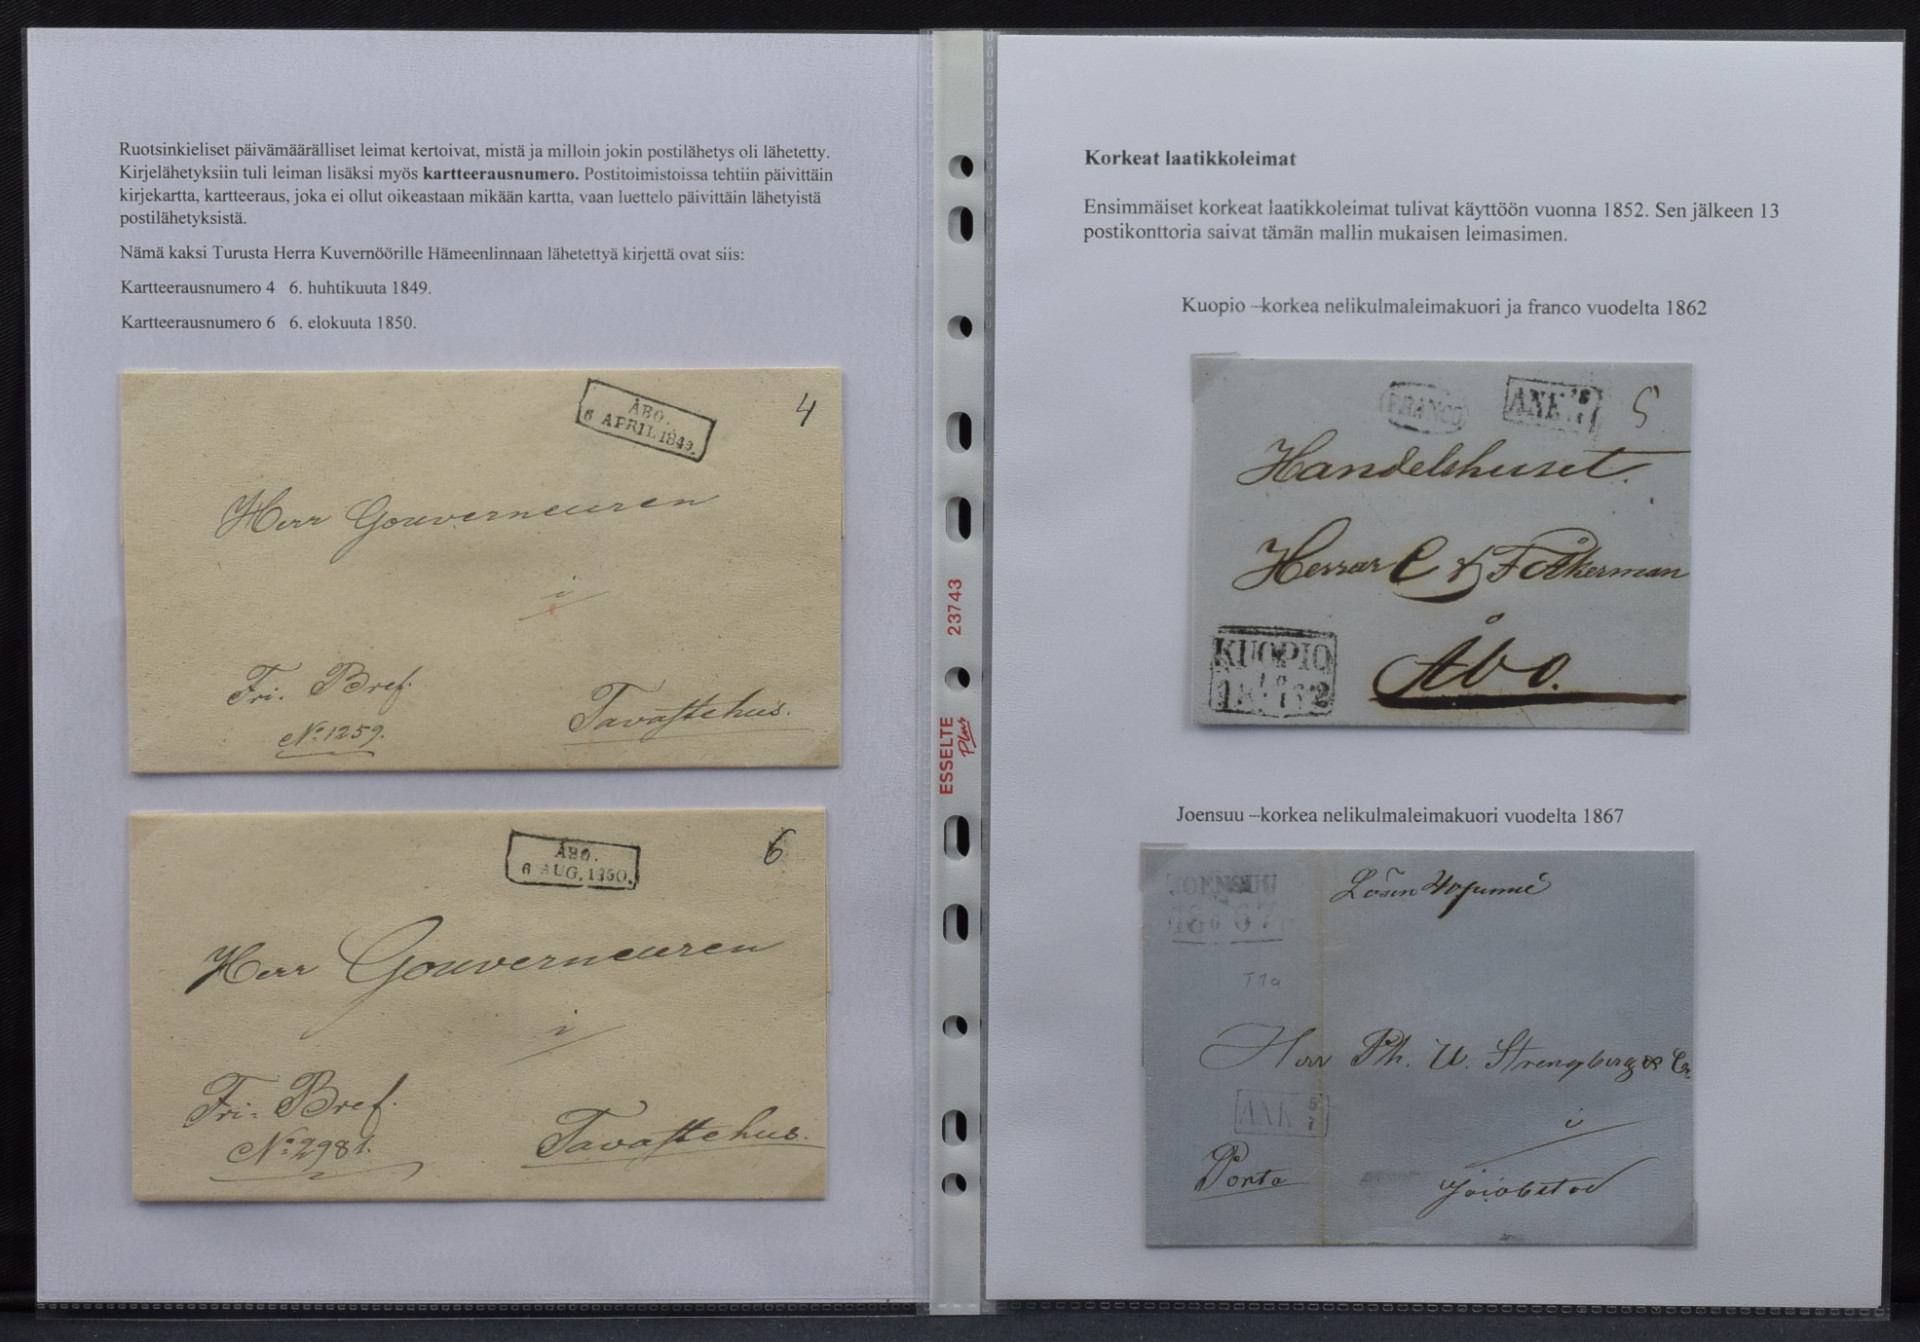 Ruotsinkieliset päivämäärälliset leimat kertoivat, mistä ja milloin jokin postilähetys oli lähetetty.
Kirjelähetyksiin tuli leiman lisäksi myös kartteerausnumero. Postitoimistoissa tehtiin päivittäin
kirjekartta, kartteeraus, joka ei ollut oikeastaan mikään kartta, vaan luettelo päivittäin lähetyistä
postilähetyksistä.
Nämä kaksi Turusta Herra Kuvernöörille Hämeenlinnaan lähetettyä kirjettä ovat siis:
Kartteerausnumero 4 6. huhtikuuta 1849.
Kartteerausnumero 6 6. elokuuta 1850.
ÅBO.
6 APRIL 1849.
4
Herr Gouverneuren
i
Fri. Bref.
No 1259.
Tavastehus.
ÅBO.
6 AUG. 1850.
6
Herr Gouverneuren
i
Fri. Bref.
No 2981.
Tavastehus.
23743
ESSELTE
Plus
Korkeat laatikkoleimat
Ensimmäiset korkeat laatikkoleimat tulivat käyttöön vuonna 1852. Sen jälkeen 13
postikonttoria saivat tämän mallin mukaisen leimasimen.
Kuopio –korkea nelikulmaleimakuori ja franco vuodelta 1862
FRANCO
ANK
5
Handelshuset
Herrar C & F Åkerman
Åbo.
KUOPIO
Joensuu –korkea nelikulmaleimakuori vuodelta 1867
JOENSUU
1867
Lösen
T1a
Herr Ph. U. Strengberg & Co
ANK 5/7
i
Porto
Jacobstad